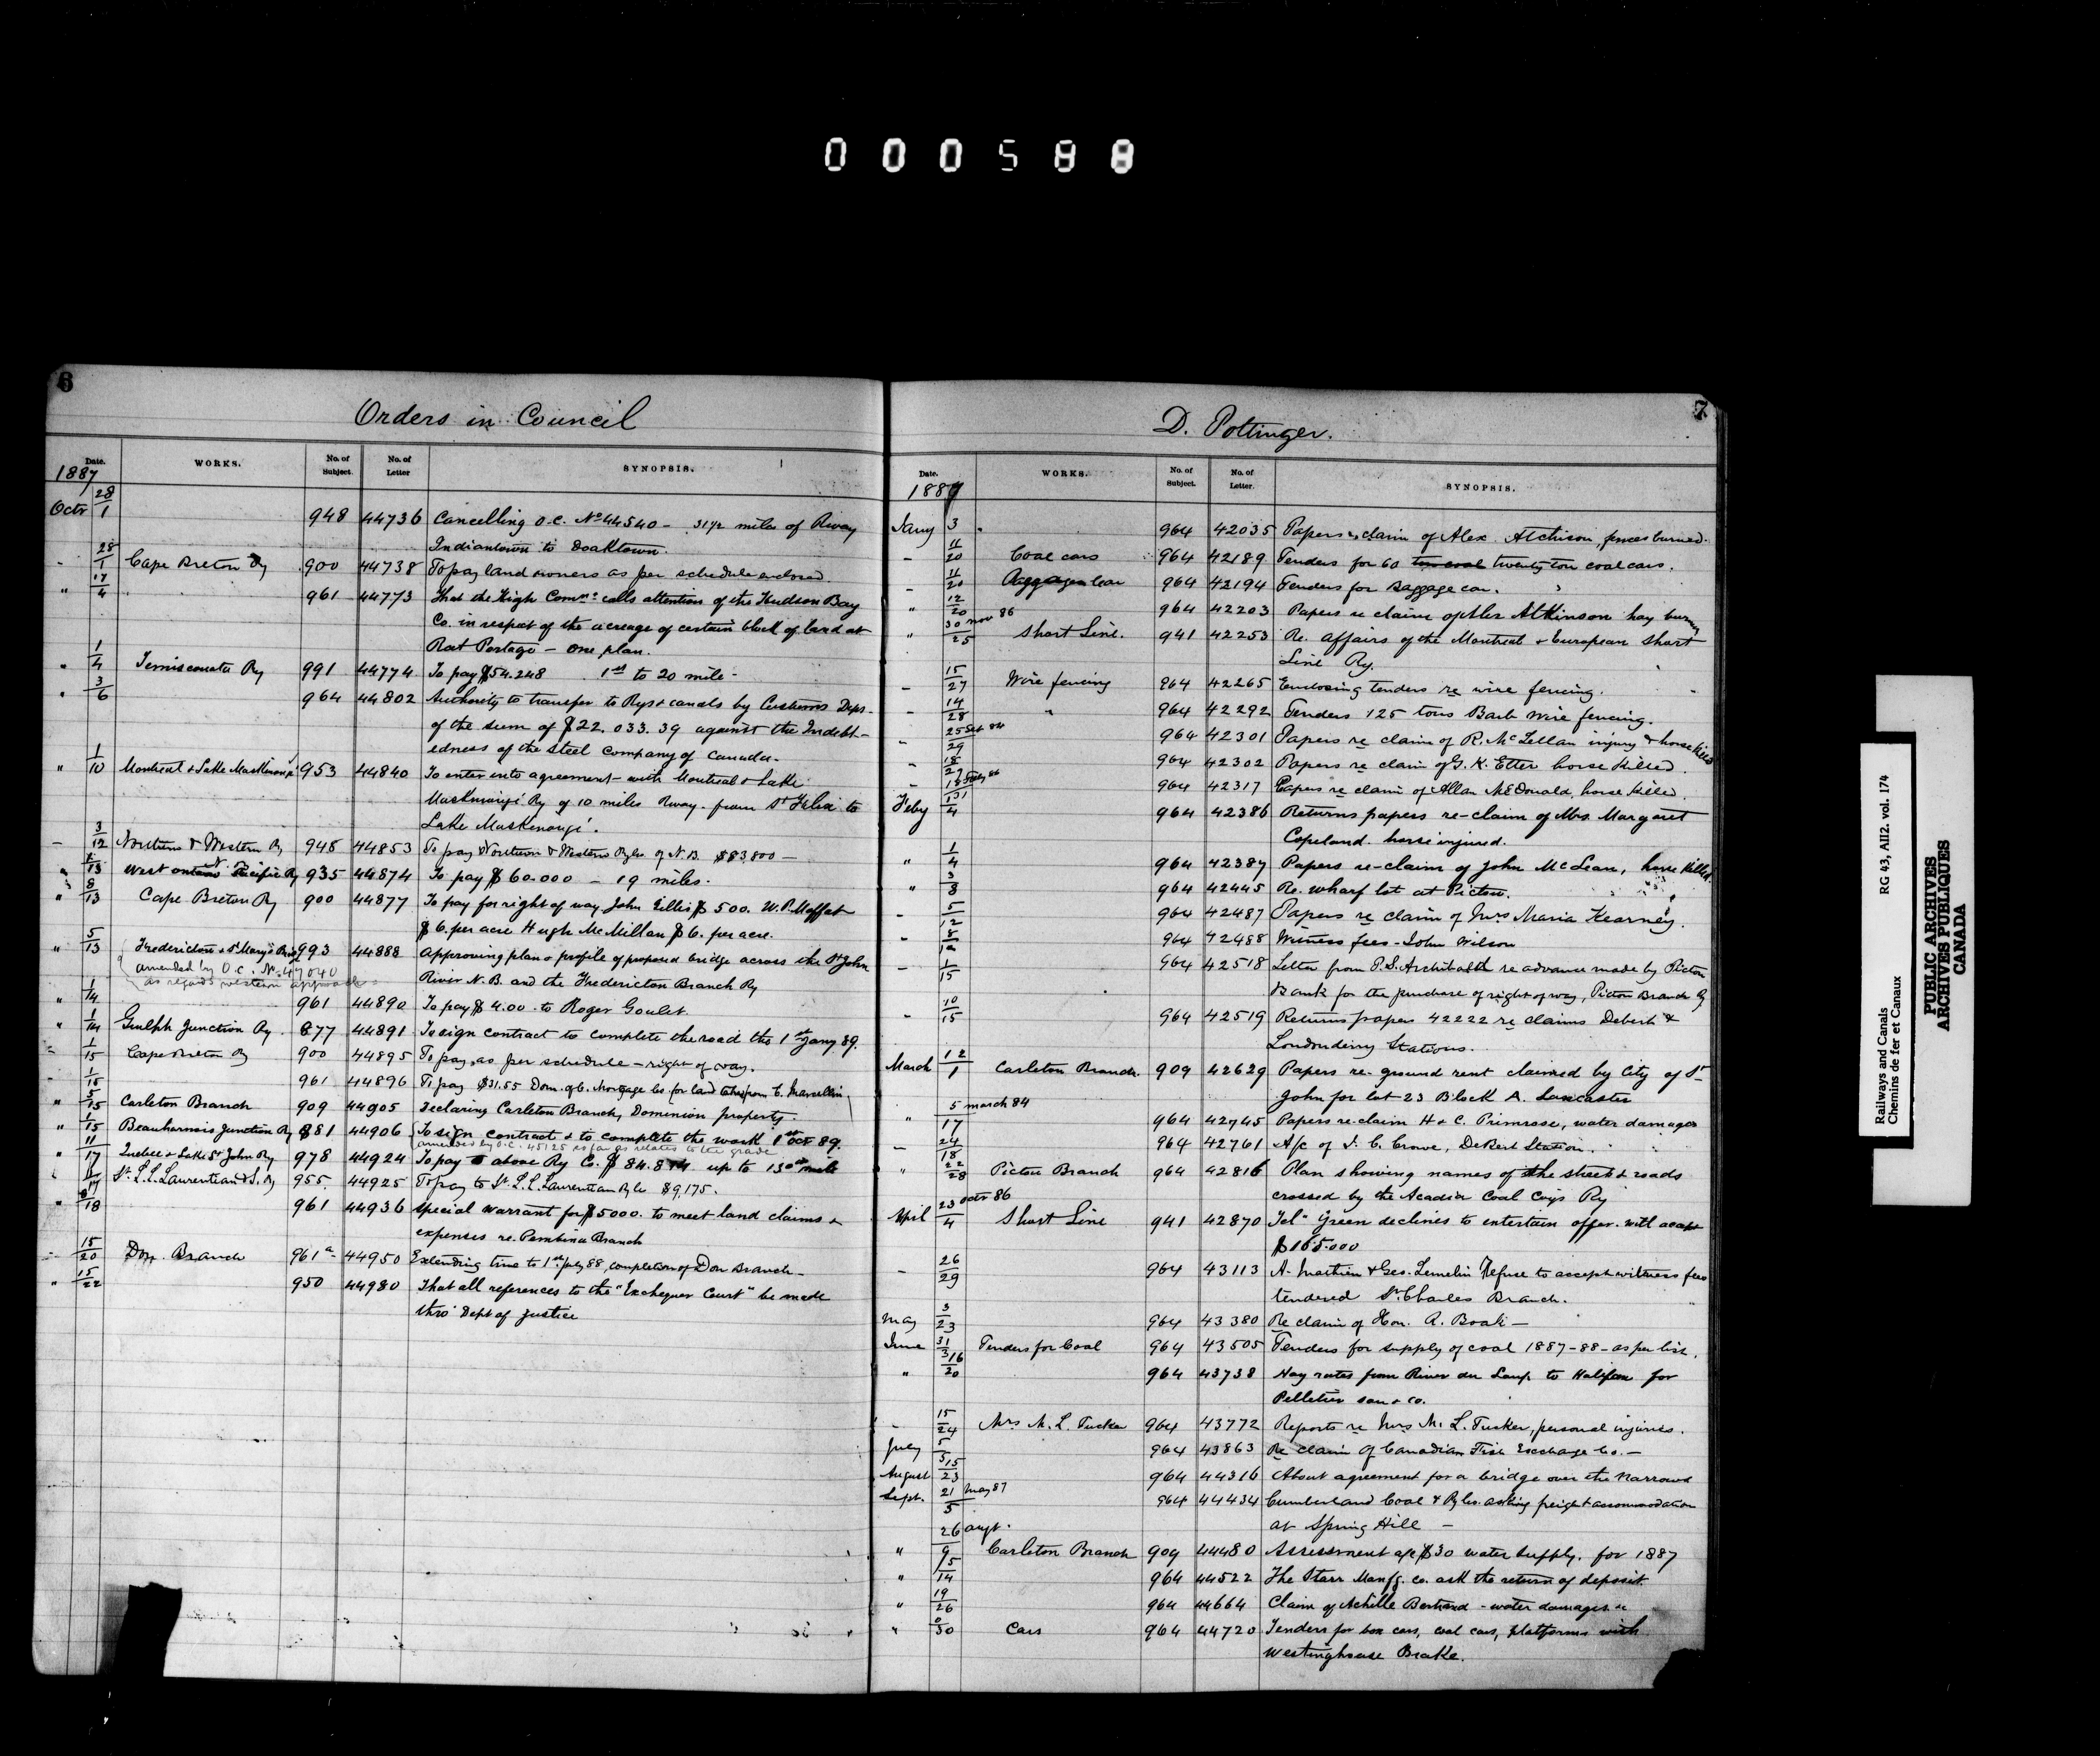 000588
6
Orders in Council
Date. WORKS. No. of Subject. No. of Letter SYNOPSIS.
1887
Octr 28/1 948 44736 Cancelling O.C. No 44540 - 31 1/2 miles of Rway
Indiantown to Doaktown.
- 28/1 Cape Breton Ry 900 44738 To pay land owners as per schedule enclosed
" 17/4 " 961 44773 That the High Commr calls attention of the Hudson Bay
Co. in respect of the acreage of certain block of land at
Rat Portage - One plan.
" 1/4 Temiscouata Ry 991 44774 To pay $54.248 1st to 20 mile -
" 3/6 964 44802 Authority to transfer to Rys & canals by Customs Dept.
of the sum of $22.033.39 against the Indebt-
edness of the steel company of Canada.
" 1/10 Montreal & Lake Maskinongé 953 44840 To enter into agreement with Montreal & Lake
Maskinongé Ry of 10 miles Rway. from St Felix to
Lake Maskinongé.
- 3/12 Northern & Western Ry 945 44853 To pay Northern & Western Ry Co. of N.B. $83800 -
" 1/13 West ontario Pacific Ry 935 44874 To pay $60.000 - 19 miles.
" 8/13 Cape Breton Ry 900 44877 To pay for right of way John Gillis $500. W.P. Moffat
$6. per acre Hugh McMillan $6. per acre.
" 5/13 Fredericton & St Mary's Bridge 993 44888 Approving plan & profile of proposed bridge across the St John
amended by O.C. No 47040
as regards western approach
River N.B. and the Fredericton Branch Ry
" 1/14 961 44890 To pay $4.00 to Roger Goulet.
" 1/14 Guelph Junction Ry. 877 44891 To sign contract to complete the road the 1st Jany 89.
" 1/15 Cape Breton Ry 900 44895 To pay as per schedule - right of way.
- 1/15 961 44896 To pay $31.55 Dom. of C. Mortgage Co. for land taken from C. Marcellin
" 5/15 Carleton Branch 909 44905 Declaring Carleton Branch, Dominion property.
" 1/15 Beauharnois Junction Ry 881 44906 To sign contract & to complete the work 1st Oct 89.
amended by O.C. 45125 as far as relates to the grade
" 11/17 Quebec & Lake St John Ry 978 44924 To pay above Ry Co. $84.814 up to 130th mile
St. L. L. Laurentian & S. Ry 955 44925 To pay to St. L. L. Laurentian Ry Co $9,175.
" 18 961 44936 Special warrant for $5000. to meet land claims &
expenses re. Pembina Branch
- 15/20 Don Branch 961a 44950 Extending time to 1st July 88, completion of Don Branch -
" 15/22 950 44980 That all references to the "Exchequer Court" be made
thro' Dept of Justice
7
D. Pottinger.
Date. WORKS. No. of Subject. No. of Letter. SYNOPSIS.
1887
Jany 3 964 42035 Papers re claim of Alex. Atchison, fences burned.
- 11/20 Coal cars 964 42189 Tenders for 60 twenty ton coal cars.
- 11/20 Baggage car 964 42194 Tenders for Baggage car.
" 12/20 964 42203 Papers re claim of Alex Atkinson hay burning
" 30 Nov 86/25 Short Line. 941 42253 Re. affairs of the Montreal & European Short
Line Ry.
- 15/27 Wire fencing 964 42265 Enclosing tenders re wire fencing.
- 14/28 " 964 42292 Tenders 125 tons Barb wire fencing.
- 25 Sept 84/29 964 42301 Papers re claim of R. McLellan injury & horse killed
- 18/27 964 42302 Papers re claim of G. K. Etter horse killed.
- 964 42317 Papers re claim of Allan McDonald, horse killed.
Feby 1/4 964 42386 Returns papers re-claim of Mrs. Margaret
Copeland. horse injured.
" 1/4 964 42387 Papers re-claim of John McLean, horse killed.
" 3/8 964 42445 Re. wharf lot at Pictou.
- 5/12 964 42487 Papers re claim of Mrs Maria Kearney.
- 8/12 964 42488 Witness fees - John Wilson
- 1/15 964 42518 Letter from P.S. Archibald re advance made by Pictou
Bank for the purchase of right of way, Pictou Branch Ry
- 10/15 964 42519 Returns papers 42222 re claims Debert &
Londonderry Stations.
March 12/1 Carleton Branch. 909 42629 Papers re-ground rent claimed by City of St
John for lot 23 Block A. Lancaster
" 5 march 84/17 964 42745 Papers re-claim H & C. Primrose, water damages
- 24/18 964 42761 A/c of J. C. Crowe, Debert Station.
" 22/28 Pictou Branch 964 42816 Plan showing names of the streets & roads
crossed by the Acadia Coal Coy's Ry
April 23 octr 86/4 Short Line 941 42870 Tel- Green declines to entertain offer. will accept
$165.000
- 26/29 964 43113 A. Mathieu & Geo. Lemelin Refuse to accept witness fees
tendered St. Charles Branch.
May 3/23 964 43380 Re claim of Hon. A. Boak -
June 31/3 Tenders for Coal 964 43505 Tenders for supply of coal 1887-88 - as per list.
" 16/20 964 43738 Hay rates from River du Loup to Halifax for
Pelletier son & co.
- 15/24 Mrs M. L. Tucker 964 43772 Reports re Mrs M. L. Tucker, personal injuries.
July 5/5 964 43863 Re claim of Canadian Fish Exchange Co. -
August 15/23 964 44316 About agreement for a bridge over the Narrows
Sept. 21 may 87/5 964 44434 Cumberland Coal & Ry Co. asking freight accommodation
at Spring Hill -
" 26 augt./9 Carleton Branch 909 44480 Assessment a/c $30 water supply. for 1887
" 5/14 964 44522 The Starr Manfg. co. ask the return of deposit.
" 19/26 964 44664 Claim of Achille Bertrand - water damages
" 30 Cars 964 44720 Tenders for box cars, coal cars, platforms with
Westinghouse Brake.
Railways and Canals RG 43, AII2. vol. 174
Chemins de fer et Canaux
PUBLIC ARCHIVES
ARCHIVES PUBLIQUES
CANADA